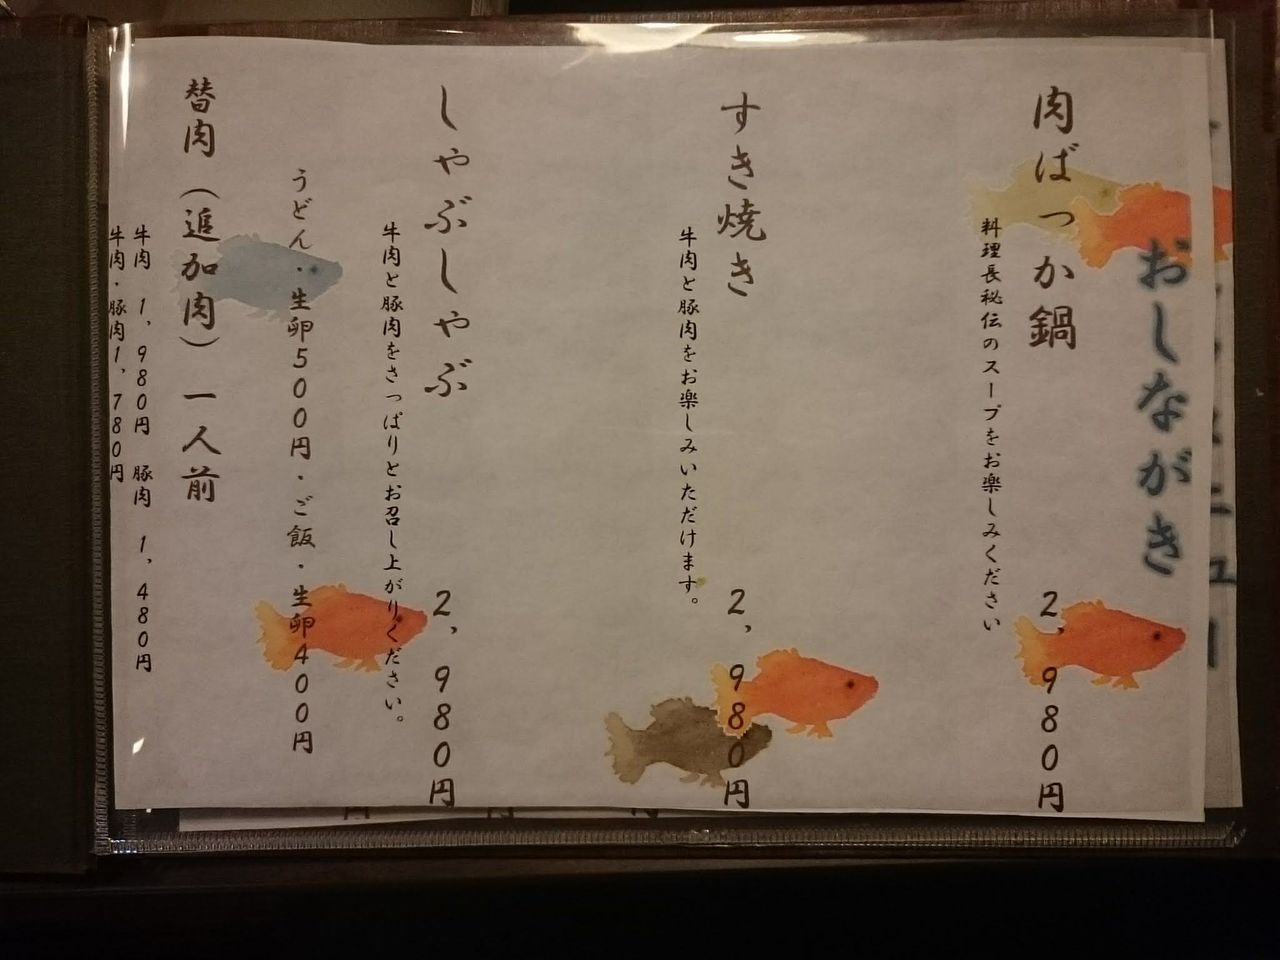 おしながき
肉ばっか鍋
2,980円
料理長秘伝のスープをお楽しみください
すき焼き
2,980円
牛肉と豚肉をお楽しみいただけます。
しゃぶしゃぶ
2,980円
牛肉と豚肉をさっぱりとお召し上がりください。
うどん・生卵500円・ご飯・生卵400円
替肉（追加肉）一人前
牛肉 1,980円 豚肉 1,480円
牛肉・豚肉1,780円